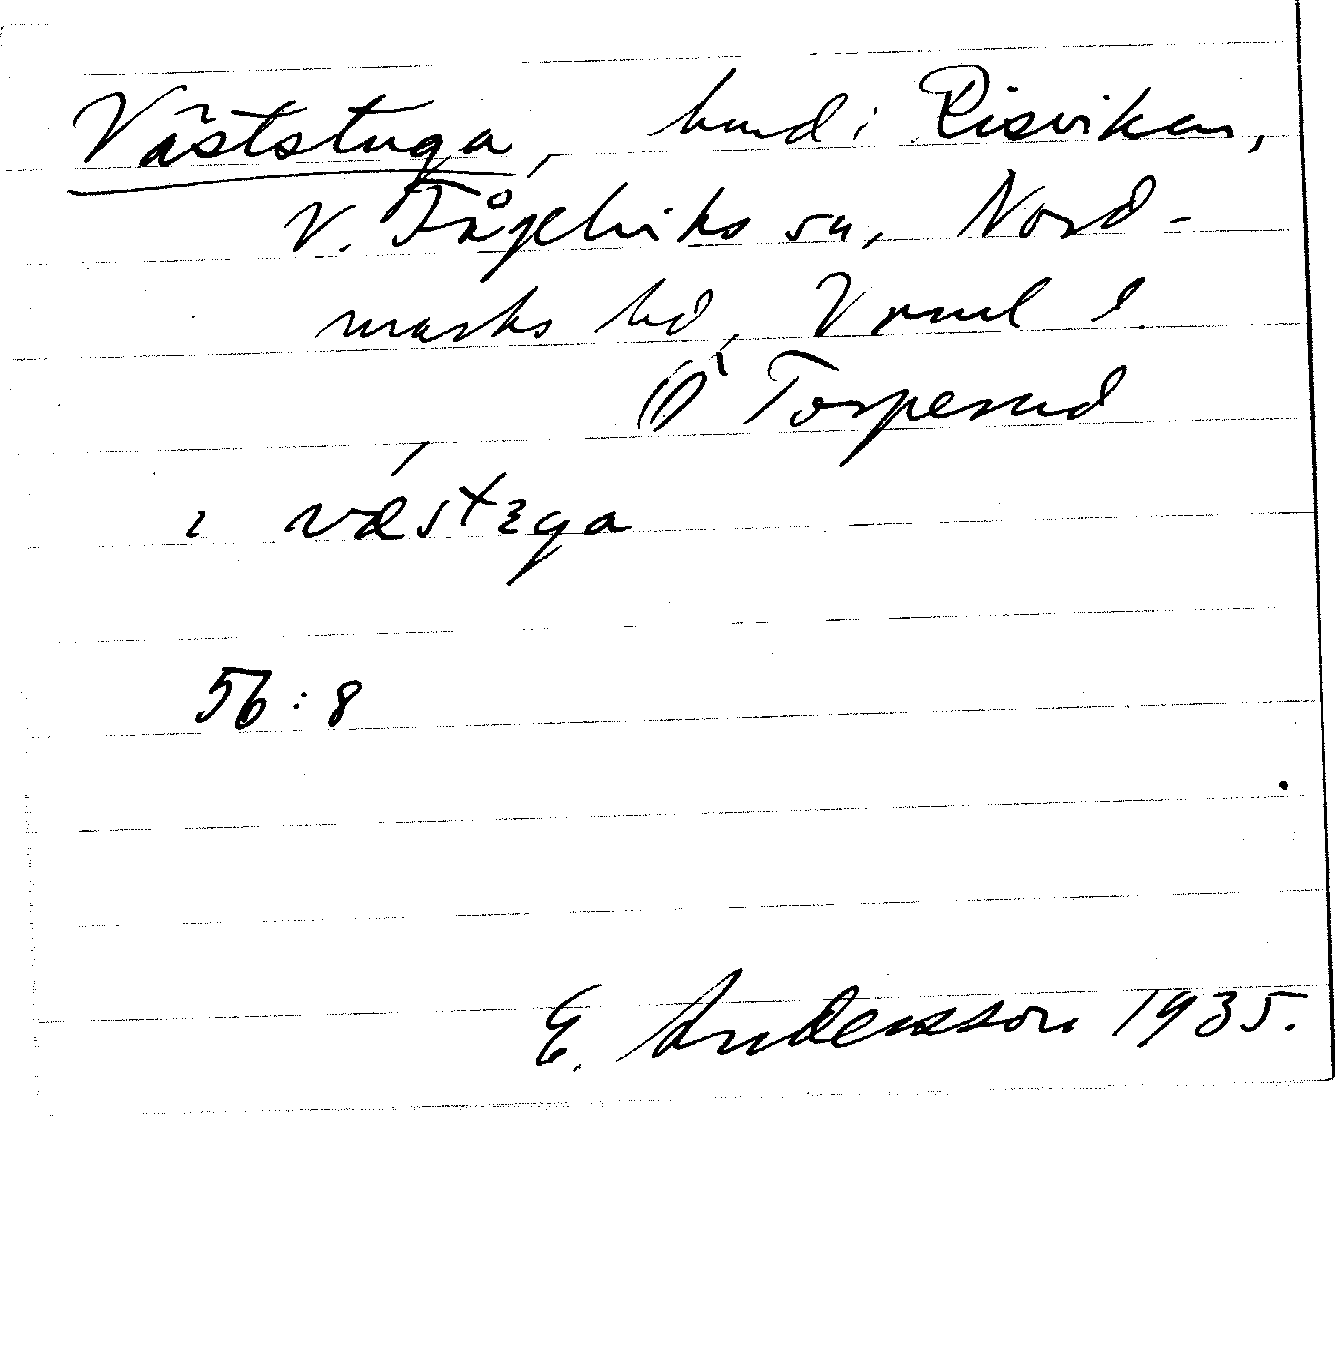 Väststuga, lund i Risviken,
V. Fågelviks sn, Nord-
marks hd, Vrml l.
Ö Torperud
i væstɜga
56:8
E. Andersson 1935.